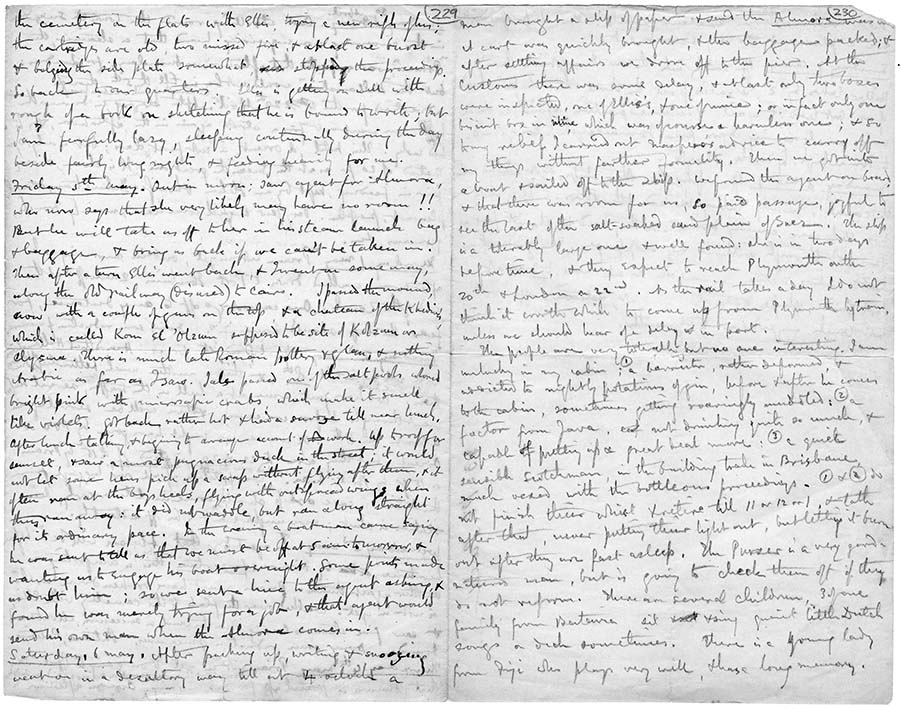 229
the cemetery in the flats with Ellis, trying a new rifle of his;
the cartridges are old, two missed fire, & at last one burst
& bulged the side plate somewhat, so stopping the proceedings.
So back to our quarters. Ellis is getting on well with
rough of a book on sketching that he is bound to write; but
I am fearfully lazy, sleeping continually during the day
beside fairly long nights, & feeding heavily for me.
Friday 5th May. Out in morn: saw agent for Almora,
who now says that she very likely may have no room!!
But he will take us off to her in his steam launch bag
& baggage, & bring us back if we can't be taken in.
Then after a turn Ellis went back, & I went on some way,
along the old railway (disused) to Cairo. I passed the mound,
now with a couple of guns on the top & a chateau of the Khedive,
which is called Kom el 'Olzum supposed the site of Kolzum or
Clysma. There is much late Roman pottery & glass, & nothing
Arabic as far as I saw. I also passed one of the salt pools colored
bright pink with microscopic crabs which make it smell
like violets. Got back rather hot & had a snooze till near lunch.
After lunch talking & trying to arrange account of work. Up to roof for
sunset, & saw a most pugnacious duck in the street; it would
not let some hens pick up a scrap without flying after them, & it
often ran at the boys heels, flying with outspread wings when
they ran away: it did not waddle, but ran along straight
for its ordinary pace. In the evening a boatman came saying
he was sent to tell us that we must be off at 5 am tomorrow, &
wanting us to engage his boat overnight. Some points made
us doubt him; so we sent a line to the agent asking, &
found he was merely trying for a job, & that agent would
send his own man when the Almora comes in.
Saturday, 6 May. After packing up, writing & snoozing
went on in a desultory way till at 4 oclock a
230
man brought a slip of paper & said the Almora was in
A cart was quickly brought, & the baggage packed; &
after settling affairs we drove off to the pier. At the
Customs there was some delay, & at last only two boxes
were inspected, one of Ellis's, & one of mine; or in fact only one
biscuit box in mine which was of course a harmless one; & so
to my relief I carried out Maspero's advice to carry off
my things without further formality. Then we got into
a boat & sailed off to the ship. We found the agent on board,
& that there was room for us, so paid passage, joyful to
see the last of the salt-soaked sand plain of Suez. The ship
is a tolerably large one & well found: she is in two days
before time, & they expect to reach Plymouth on the
20th & London on 22nd. As the rail takes a day I do not
think it worth while to come up from Plymouth by train,
unless we should hear of a delay in port.
The people are very tolerable but no one interesting. I am
unlucky in my cabin: ① a barrister, rather deformed, &
addicted to nightly potations of gin, before & after he comes
to the cabin, sometimes getting roaringly jolly: ② a
factor from Java, not drinking quite so much, &
capable of putting up a great deal more. ③ a quiet
sensible Scotchman, in the building trade in Brisbane,
much vexed with the bottleous proceedings. ① & ② do
not finish their whist & retire till 11 or 12 or 1, & talk
after that, never putting their light out, but letting it burn
out after they are fast asleep. The Purser is a very good
natured man, but is going to check them off if they
do not reform. There are several children, 3 of one
family from Batavia sit & sing quaint little Dutch
songs on deck sometimes. There is a young lady
from Fiji who plays very well, & has a long memory.